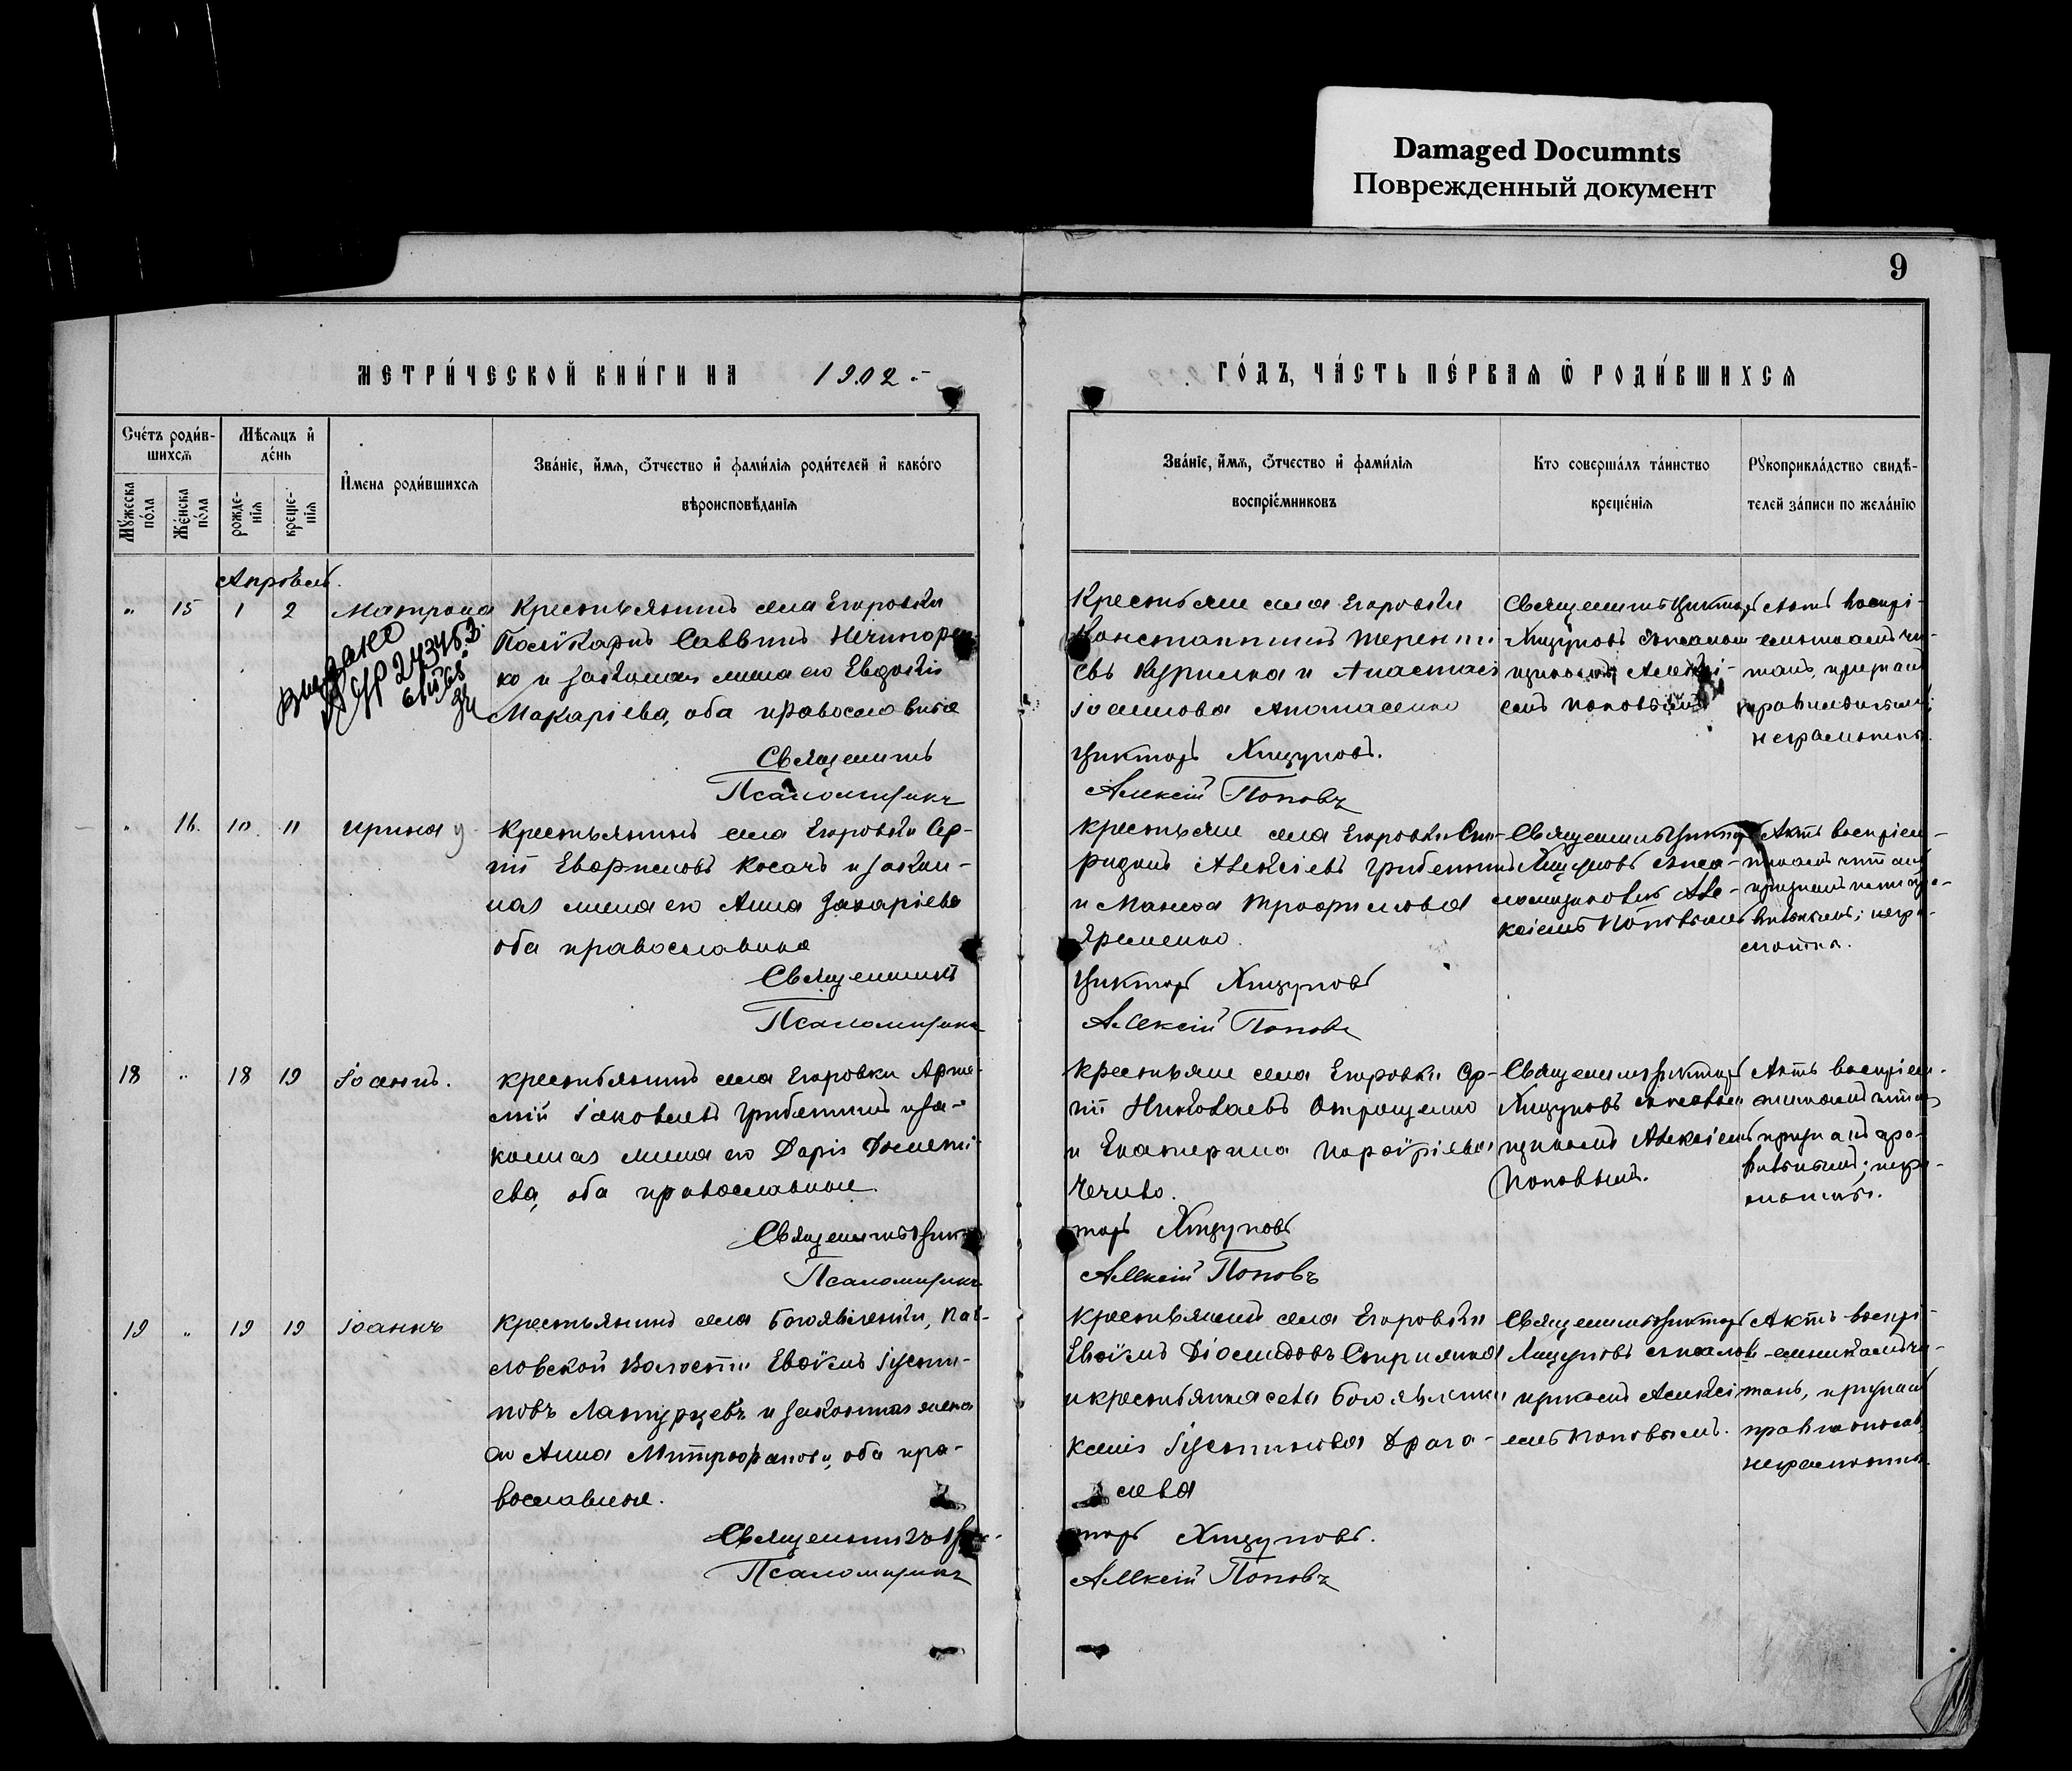 Damaged Documnts
Поврежденный документ
9
МЕТРИ́ЧЕСКОЙ КНИ́ГИ НА 1902
ГО́ДЪ, ЧА́СТЬ ПЕ́РВАѦ Ѽ РОДИ́ВШИХСѦ
Сче́тъ роди́в-
шихсѧ
Мꙋ́жеска по́ла
Же́нска по́ла
Мѣ́сѧцъ и҆ де́нь
рожде-
нїѧ
креще-
нїѧ
И҆мена роди́вшихсѧ
Зва́нїе, и҆́мѧ, ѻ҆́тчество и҆ фами́лїѧ роди́телей и҆ како́го
вѣроисповѣ́данїѧ
Зва́нїе, и҆́мѧ, ѻ҆́тчество и҆ фами́лїѧ
воспрїе́мниковъ
Кто соверша́лъ та́инство
креще́нїѧ
Рꙋкоприкла́дство свидѣ́-
телей за́писи по жела́нїю
Апрѣль.
" 15 1 2 Матрона
Крестьянинъ села Егоровки
Поликарпъ Саввинъ Нечипорен-
ко и законная жена его Евдокія
Макаріева, оба православные
Священникъ
Псаломщикъ
Крестьяне села Егоровки
Константинъ Терентi
евъ Курилка и Анастасія
Іоаннова Апанасенко
Викторъ Хицуновъ.
Алексій Поповъ
Священникъ Викторъ
Хицуновъ съ псалом
щикомъ Алексі-
емъ Поповымъ
Актъ воспрі-
емникамъ чи-
танъ, признанъ
правильнымъ;
неграмотны.
" 16. 10. 11 Ирина
Крестьянинъ села Егоровки Сер-
гій Косачъ и закон-
ная жена его Анна Захаріева
оба православные
Священникъ
Псаломщикъ
Крестьяне села Егоровки Спи-
ридонъ Алексіевъ Грибенникъ
и Марѳа Трофимова
Яременко.
Викторъ Хицуновъ
Алексій Поповъ
Священникъ Викторъ
Хицуновъ съ пса-
ломщикомъ Але-
ксіемъ Поповымъ
Актъ воспріем-
никамъ читанъ
признанъ пра-
вильнымъ; негра-
мотны.
18 " 18 19 Іоаннъ.
Крестьянинъ села Егоровки Арте-
мій Іаковлевъ Грибенникъ и за-
конная жена его Дарія Домети-
ева, оба православные.
Священникъ Вик-
Псаломщикъ
Крестьяне села Егоровки Сер-
гій Николаевъ Онищенко
и Екатерина Порфиріева
Чечило.
торъ Хицуновъ
Алексій Поповъ
Священникъ Викторъ
Хицуновъ съ псалом
щикомъ Алексіемъ
Поповымъ.
Актъ воспріем-
никамъ читанъ
признанъ пра-
вильнымъ; негра-
мотны.
19 " 19 19 Іоаннъ
Крестьянинъ села Богоявленки, Пав-
ловской Волости Евѳимъ Іусти-
новъ Латурцевъ и законная жена
его Анна Митрофанова, оба пра-
вославные.
Священникъ Вик-
Псаломщикъ
Крестьянинъ села Егоровки
Евѳимъ Діомидовъ Скирипка
и крестьянка села Богоявленки
Ксенія Іустинова Драга-
лева
торъ Хицуновъ.
Алексій Поповъ
Священникъ Викторъ
Хицуновъ съ псалом
щикомъ Алексі
емъ Поповымъ.
Актъ воспрі-
емникамъ чи-
танъ, признанъ
правильнымъ,
неграмотны.